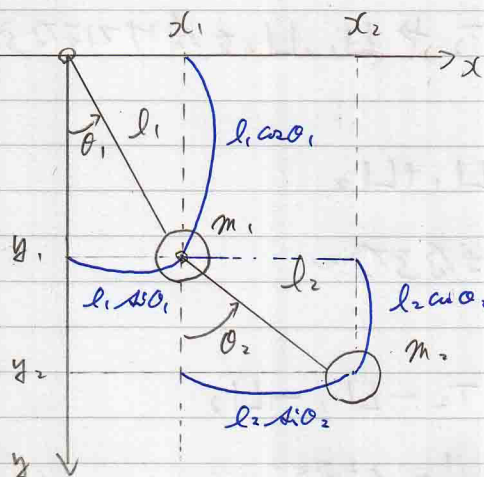 x₁ x₂
x
θ₁ l₁ l₁cosθ₁
m₁
y₁
l₁siθ₁ l₂ l₂cosθ₂
θ₂ m₂
y₂
l₂siθ₂
y